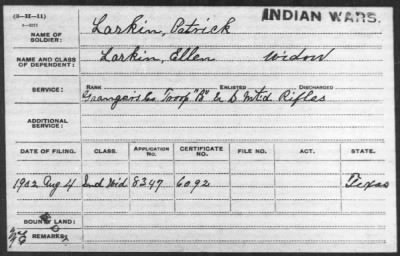 (3-II-11)
INDIAN WARS.
NAME OF SOLDIER: Larkin, Patrick
NAME AND CLASS OF DEPENDENT: Larkin, Ellen Widow
SERVICE: RANK ENLISTED DISCHARGED
Co. Troop "B" & D Mtd Rifles
ADDITIONAL SERVICE:
DATE OF FILING. CLASS. APPLICATION No. CERTIFICATE No. FILE NO. ACT. STATE.
1902 Aug 4 Ind Wid 8347 6092 Texas
BOUNTY LAND:
REMARKS: